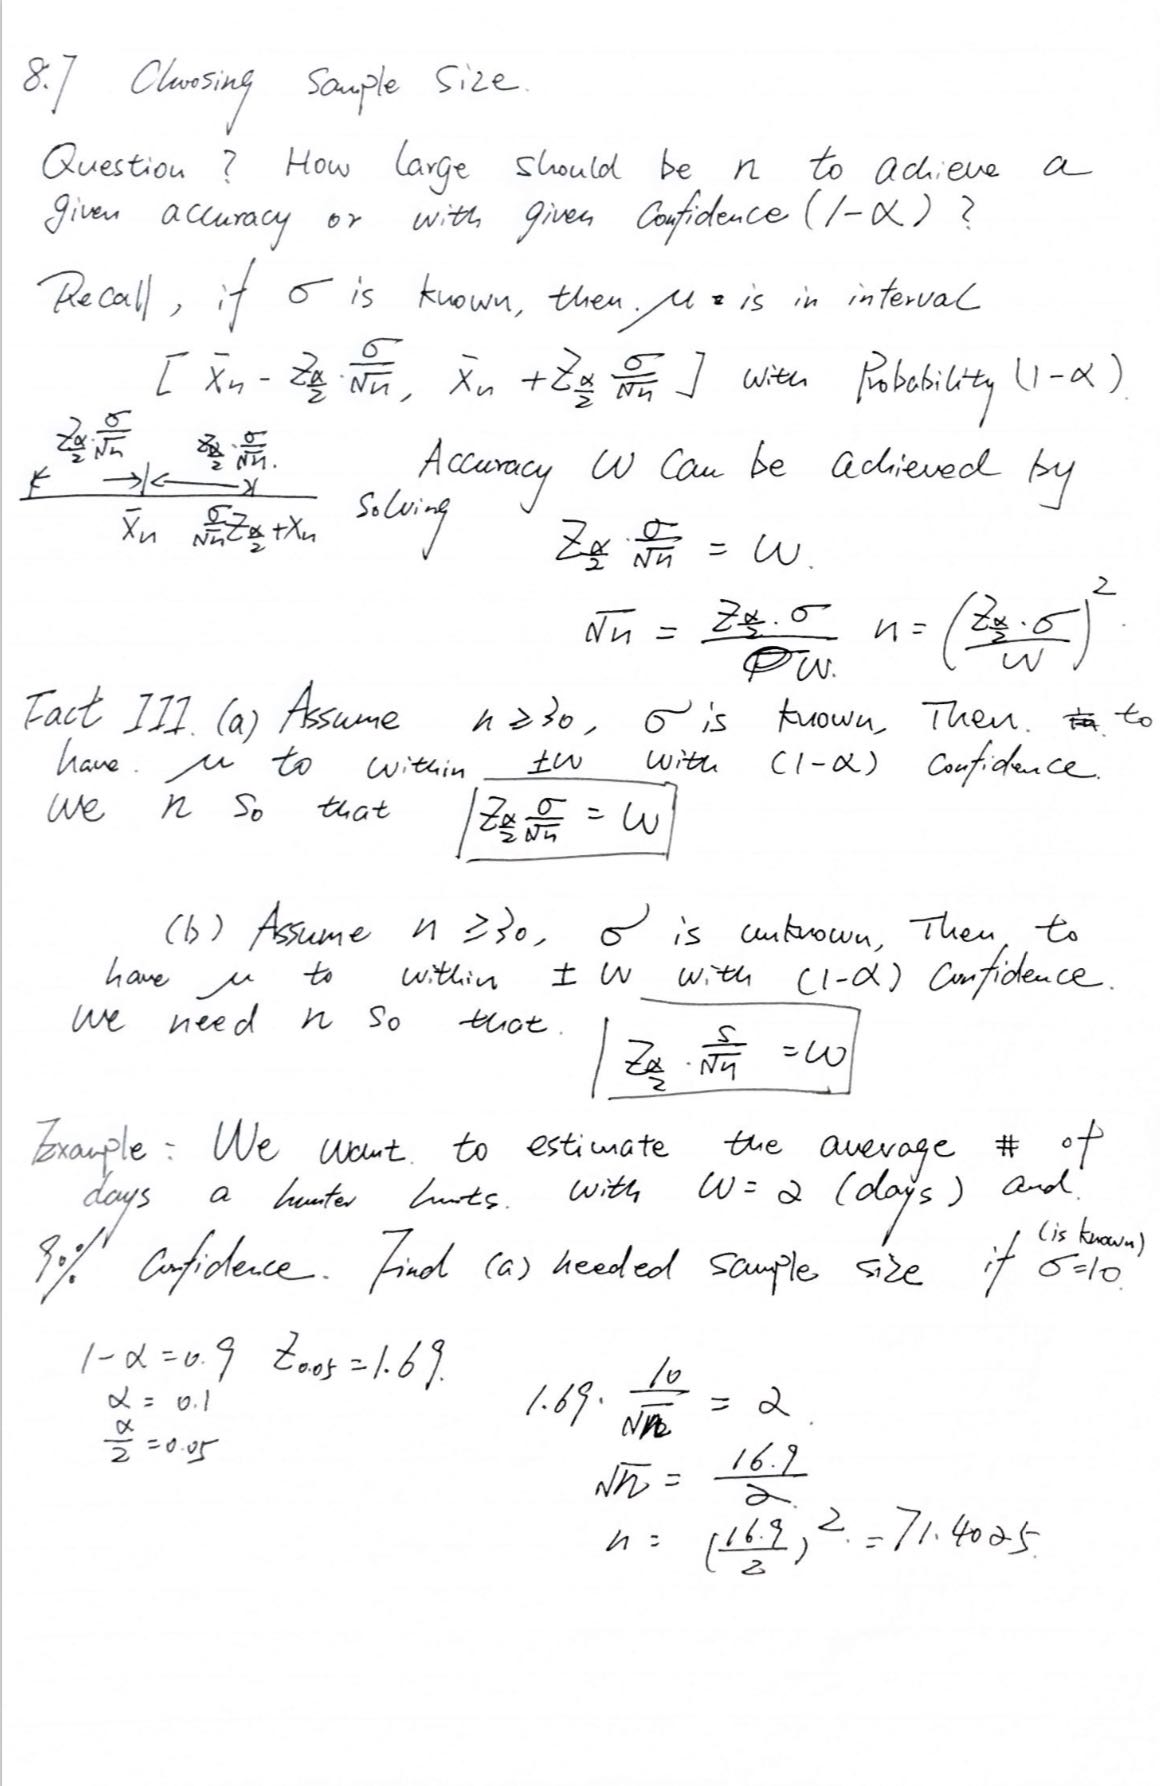 8.7 Choosing Sample Size.
Question ? How large should be n to achieve a
given accuracy or with given Confidence (1-α) ?
Recall, if σ is known, then. μ is in interval
[ x̄n - Zα/2 · σ/√n, x̄n + Zα/2 σ/√n ] with Probability (1-α).
Zα/2 · σ/√n Zα/2 · σ/√n.
x̄n σ/√n Zα/2 + x̄n
Accuracy W Can be achieved by
Solving
Zα/2 · σ/√n = W.
√n = Zα/2 · σ / W. n = (Zα/2 · σ / W)²
Fact III. (a) Assume n ≥ 30, σ is known, Then. to
have. μ to within ±W with (1-α) Confidence.
we n so that Zα/2 σ/√n = W
(b) Assume n ≥ 30, σ is unknown, Then, to
have μ to within ± W with (1-α) Confidence.
we need n so that. Zα/2 · S/√n = W
Example : We want to estimate the average # of
days a hunter hunts. with W = 2 (days) and.
90% Confidence. Find (a) needed sample size if σ=10. (is known)
1-α = 0.9 Z0.05 = 1.69.
α = 0.1
α/2 = 0.05
1.69 · 10/√n = 2.
√n = 16.9/2.
n = (16.9/2)². = 71.4025.